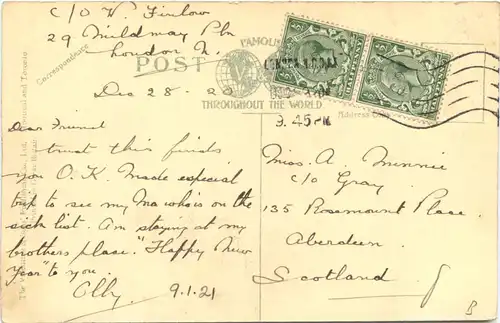 C/O W. Finlow
29 Mildmay Pk
London N.
Correspondence
POST
FAMOUS
LONDON
THROUGHOUT THE WORLD
9.45 PM
Address Only
Dec 28 - 20
Dear Friend
trust this finds
you O.K. Made especial
trip to see my Ma who is on the
sick list. Am staying at my
brothers place. "Happy New
Year" to you.
Olly 9.1.21
Miss. A. Minnie
c/o Gray.
135 Rosemount Place.
Aberdeen.
Scotland
B